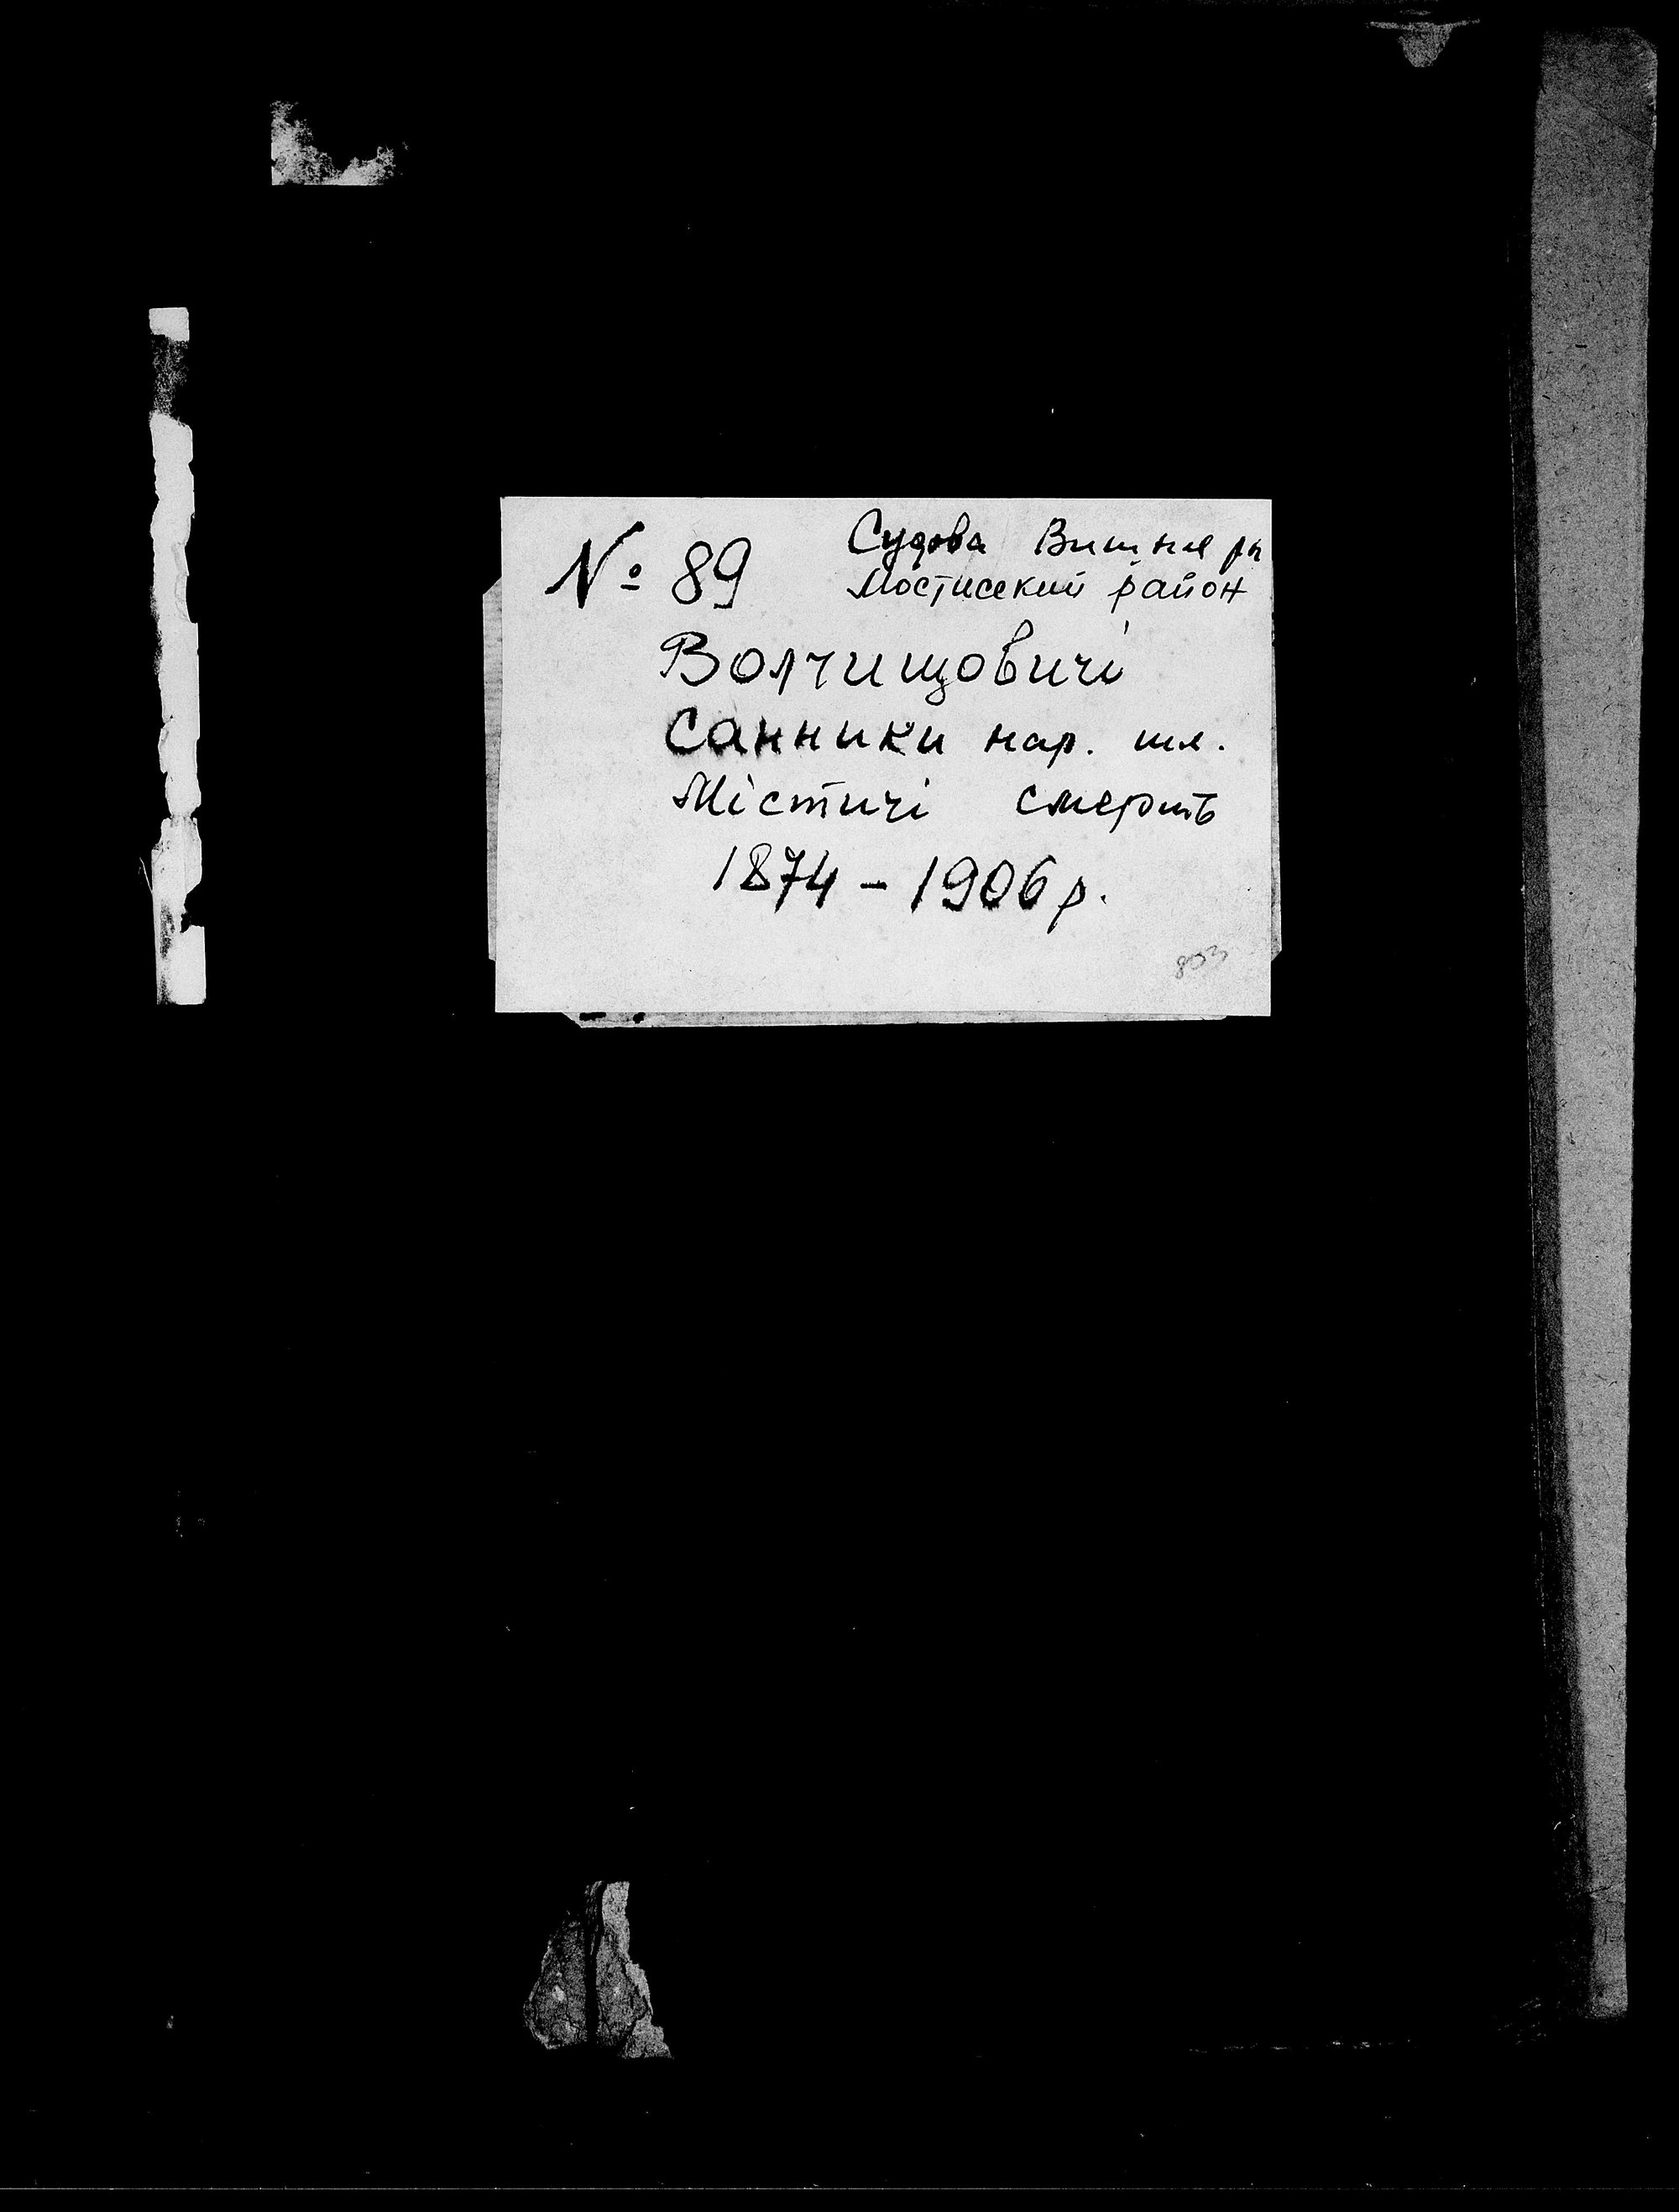 № 89
Судова Вишня рн
Мостиский район
Волчищовичі
Санники нар. шл.
Містичі смерть
1874 – 1906 р.
803